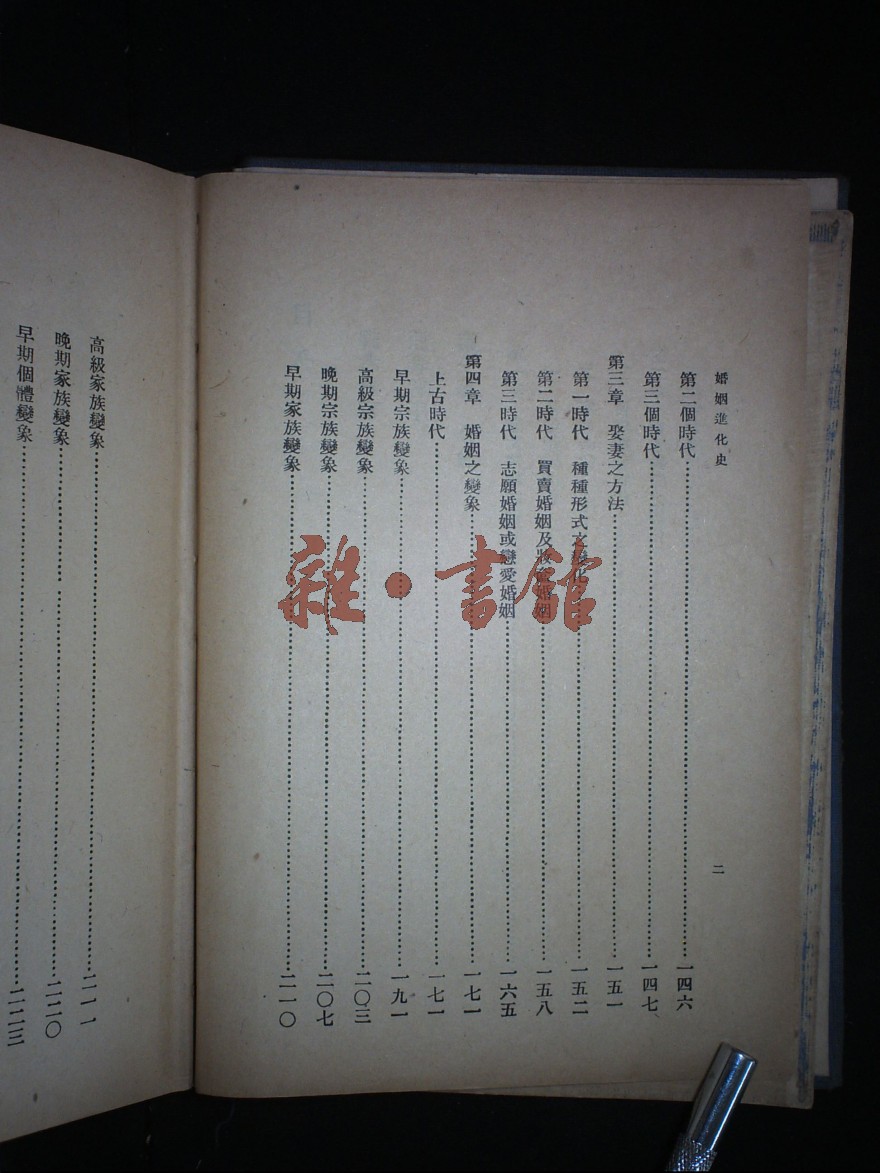 婚姻進化史
二
第二個時代……一四六
第三個時代……一四七
第三章 娶妻之方法……一五一
第一時代 種種形式之變化……一五二
第二時代 買賣婚姻及妝奩婚姻……一五八
第三時代 志願婚姻或戀愛婚姻……一六五
第四章 婚姻之變象……一七一
上古時代……一七一
早期宗族變象……一九一
高級宗族變象……二〇三
晚期宗族變象……二〇七
早期家族變象……二一〇
高級家族變象……二一一
晚期家族變象……二二〇
早期個體變象……二二三
雜·書館